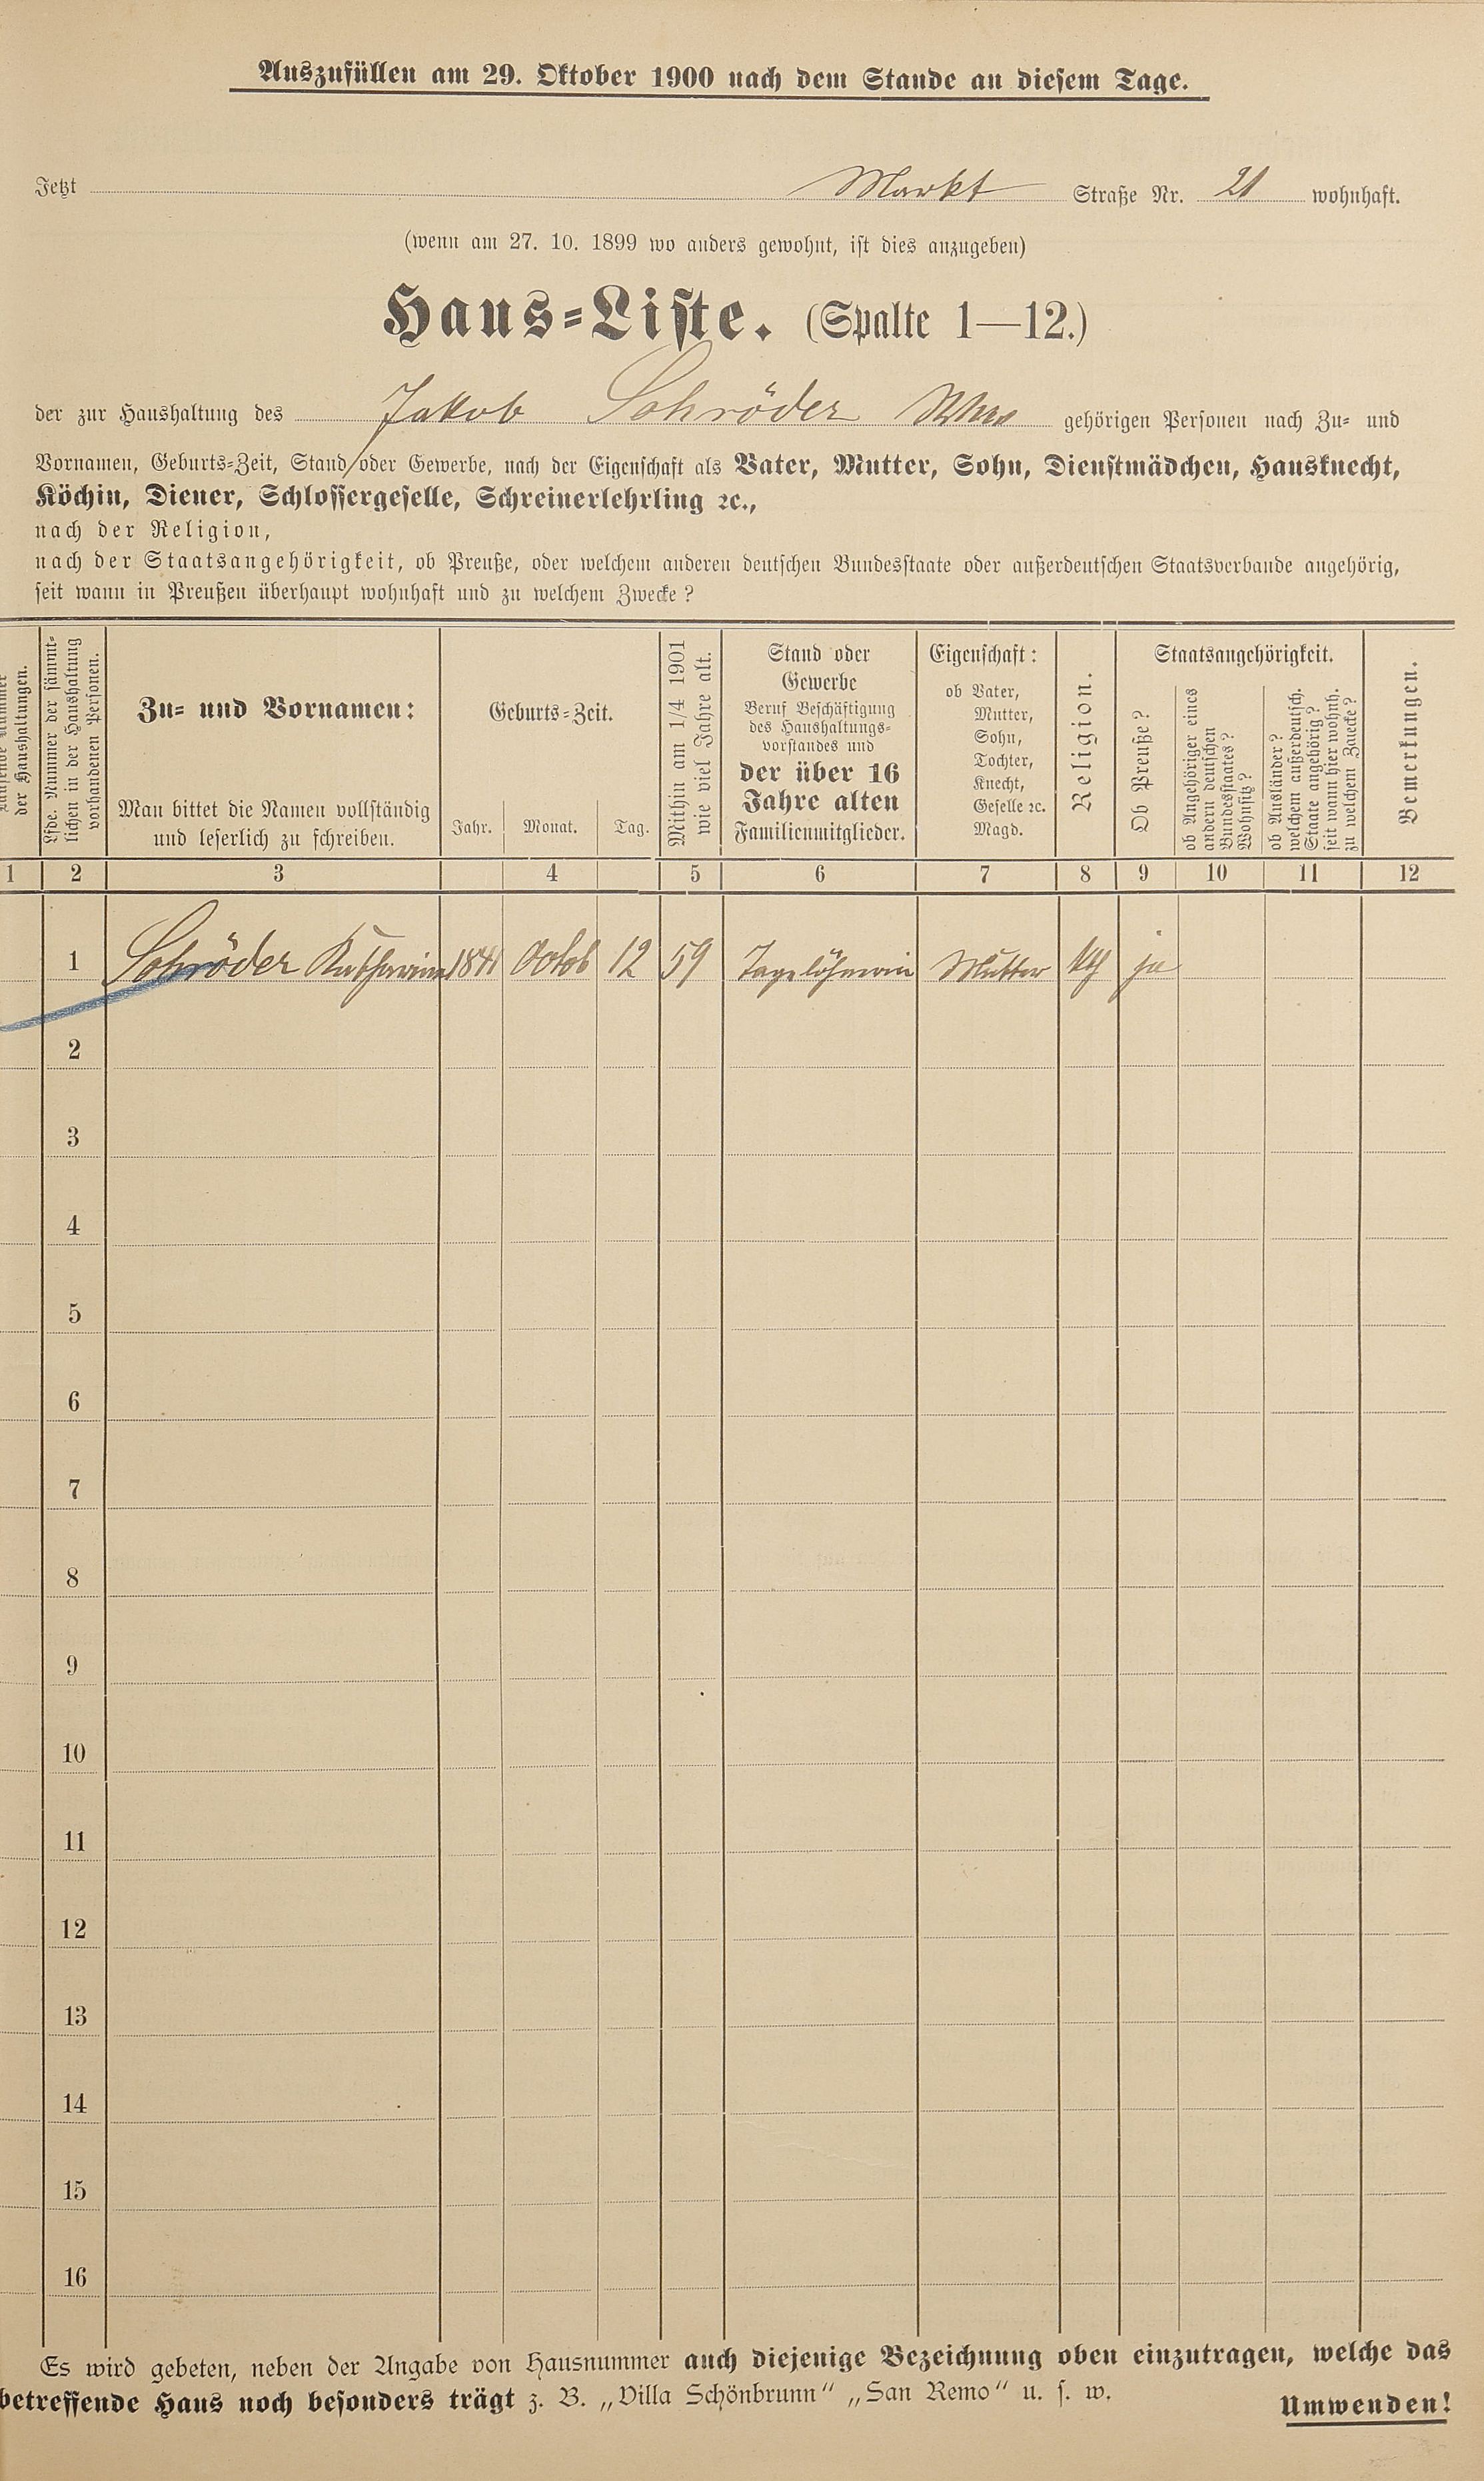 Auszufüllen am 29. Oktober 1900 nach dem Stande an diesem Tage.
Jetzt Markt Straße Nr. 21 wohnhaft.
(wenn am 27. 10. 1899 wo anders gewohnt, ist dies anzugeben)
Haus-Liste. (Spalte 1—12.)
der zur Haushaltung des Jakob Schröder Wwe gehörigen Personen nach Zu- und
Vornamen, Geburts-Zeit, Stand oder Gewerbe, nach der Eigenschaft als Vater, Mutter, Sohn, Dienstmädchen, Hausknecht,
Köchin, Diener, Schlossergeselle, Schreinerlehrling ꝛc.,
nach der Religion,
nach der Staatsangehörigkeit, ob Preuße, oder welchem anderen deutschen Bundesstaate oder außerdeutschen Staatsverbande angehörig,
seit wann in Preußen überhaupt wohnhaft und zu welchem Zwecke?
Nummer
der Haushaltungen.
Lfde. Nummer der sämmt-
lichen in der Haushaltung
vorhandenen Personen.
Zu- und Vornamen:
Man bittet die Namen vollständig
und leserlich zu schreiben.
Geburts-Zeit.
Jahr. Monat. Tag.
Mithin am 1/4 1901
wie viel Jahre alt.
Stand oder
Gewerbe
Beruf Beschäftigung
des Haushaltungs-
vorstandes und
der über 16
Jahre alten
Familienmitglieder.
Eigenschaft:
ob Vater,
Mutter,
Sohn,
Tochter,
Knecht,
Geselle ꝛc.
Magd.
Religion.
Staatsangehörigkeit.
Ob Preuße?
ob Angehöriger eines
andern deutschen
Bundesstaates?
Wohnsitz?
ob Ausländer?
welchem außerdeutsch.
Staate angehörig?
seit wann hier wohnh.
zu welchem Zwecke?
Bemerkungen.
1 2 3 4 5 6 7 8 9 10 11 12
1 Schröder Katharina 1841 Octob 12 59 Tagelöhnerin Mutter kth ja
2
3
4
5
6
7
8
9
10
11
12
13
14
15
16
Es wird gebeten, neben der Angabe von Hausnummer auch diejenige Bezeichnung oben einzutragen, welche das
betreffende Haus noch besonders trägt z. B. „Villa Schönbrunn“ „San Remo“ u. s. w.
Umwenden!